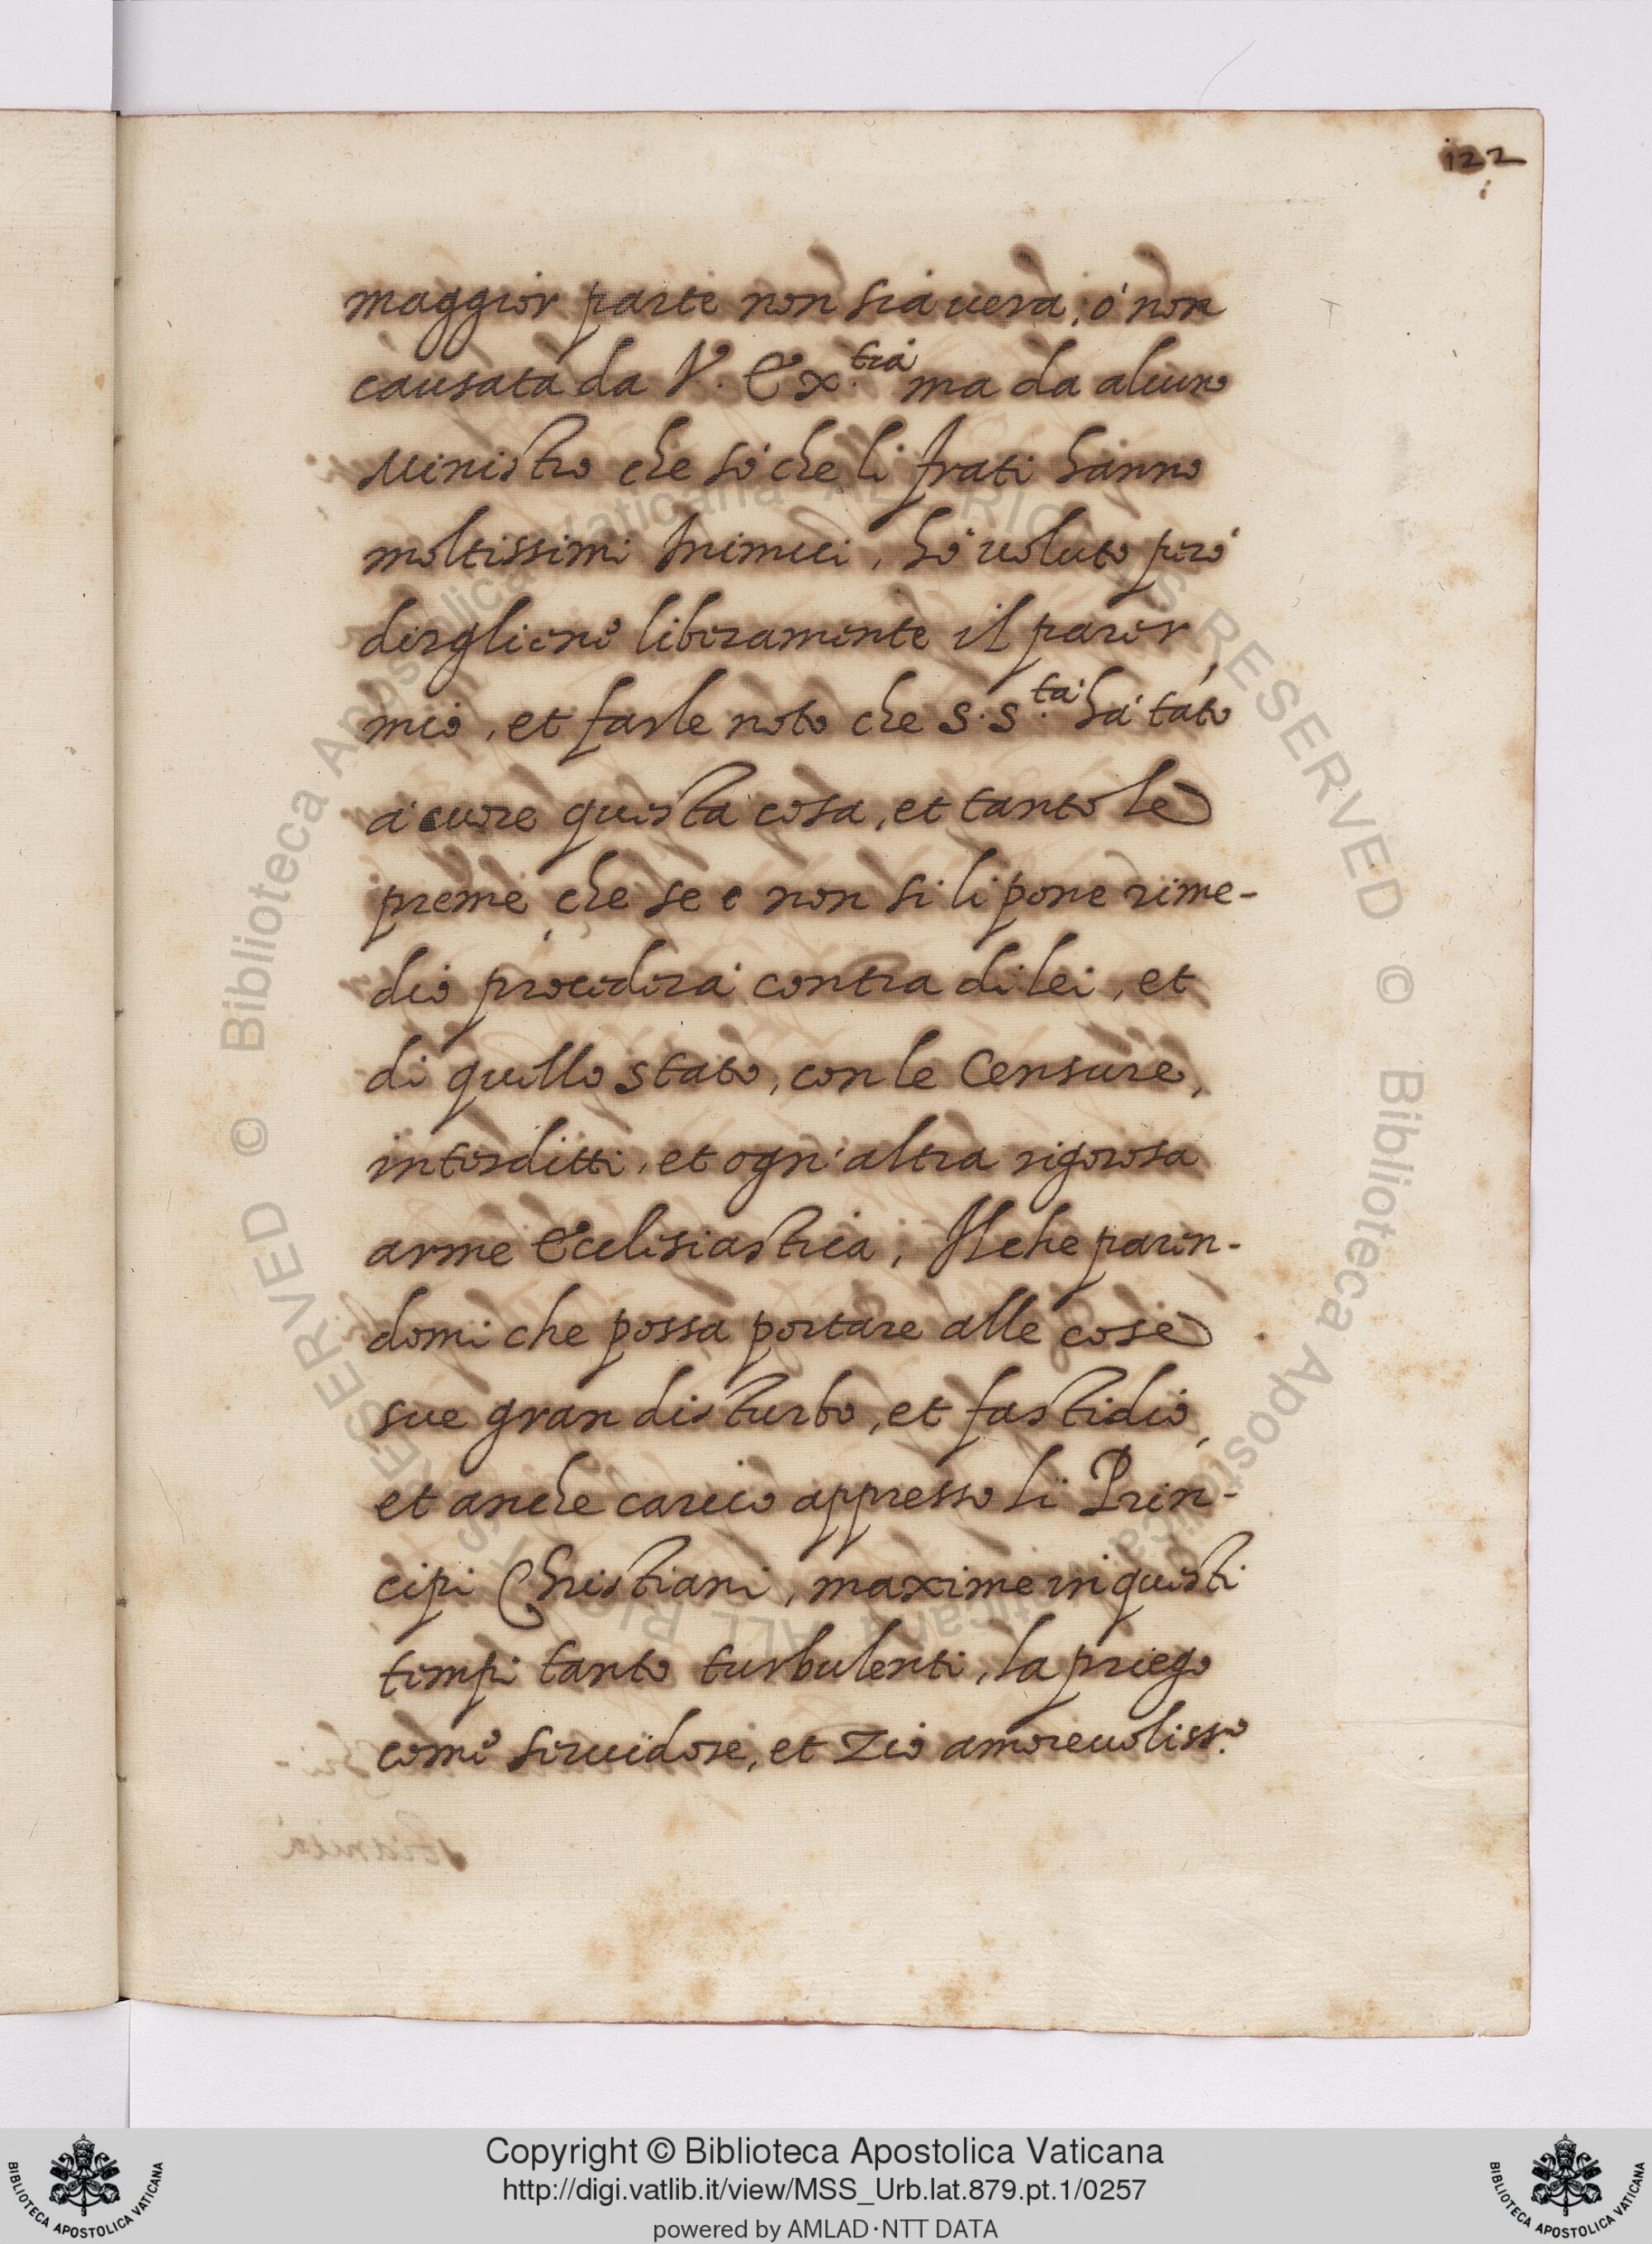 122
maggior parte non sia uera, ó non
causata da V. Ex.tia ma da alcuno
Ministro che só che li frati hanno
moltissimi Inimici, hó uoluto peró
dirgliene liberamente il parer
mio, et farle noto che S. S.tá há tato
á cuore questa cosa, et tanto le
preme, che se e non si li pone rime-
dio procederá contra di lei, et
di quello stato, con le Censure,
interditti, et ogn'altra rigorosa
arme Ecclesiastica, Il che paren-
domi che possa portare alle cose
sue gran disturbo, et fastidio,
et anche carico appresso li Prin-
cipi Christiani, maxime in questi
tempi tanto turbulenti, la priego
come seruidore, et Zio amoreuoliss.o
© Biblioteca Apostolica Vaticana ALL RIGHTS RESERVED
© Biblioteca Apostolica Vaticana ALL RIGHTS RESERVED
BIBLIOTECA APOSTOLICA VATICANA
Copyright © Biblioteca Apostolica Vaticana
http://digi.vatlib.it/view/MSS_Urb.lat.879.pt.1/0257
powered by AMLAD·NTT DATA
BIBLIOTECA APOSTOLICA VATICANA